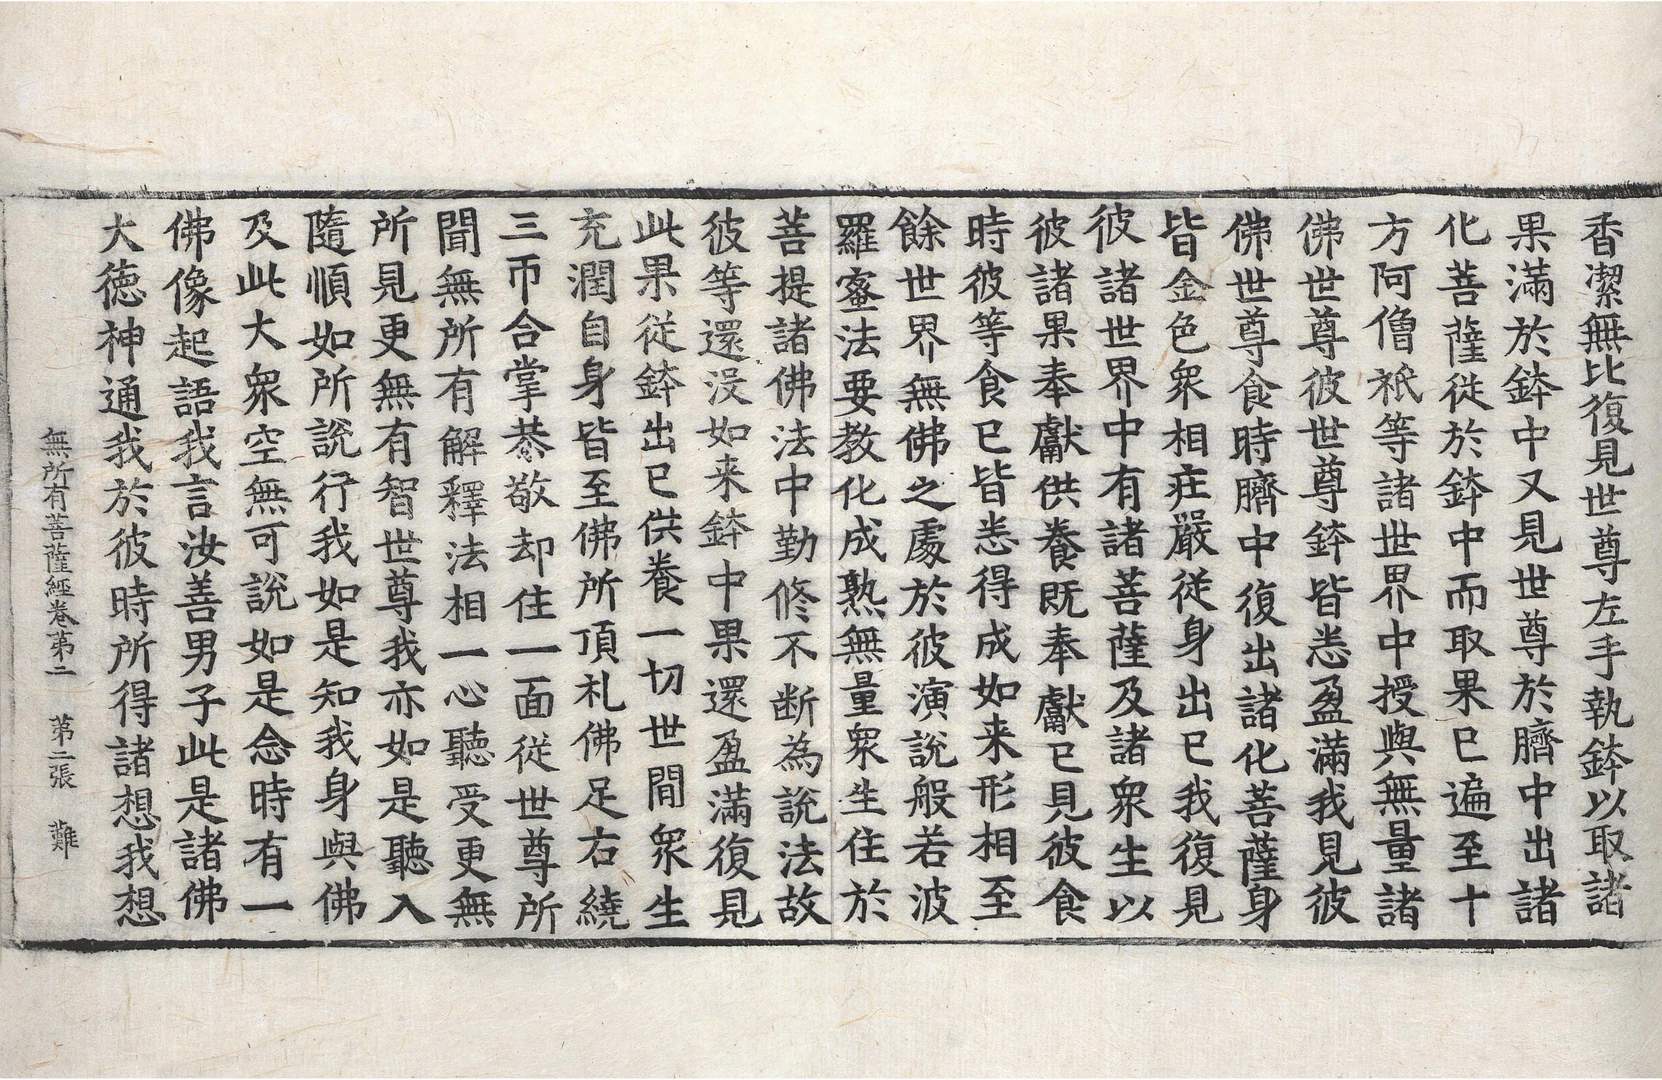 香潔無比復見世尊左手執鉢以取諸
果滿於鉢中又見世尊於臍中出諸
化菩薩從於鉢中而取果已遍至十
方阿僧祇等諸世界中授與無量諸
佛世尊彼世尊鉢皆悉盈滿我見彼
佛世尊食時臍中復出諸化菩薩身
皆金色衆相庄嚴從身出已我復見
彼諸世界中有諸菩薩及諸衆生以
彼諸果奉獻供養旣奉獻已見彼食
時彼等食已皆悉得成如来形相至
餘世界無佛之處於彼演說般若波
羅蜜法要教化成熟無量衆生住於
菩提諸佛法中勤修不断為說法故
彼等還没如来鉢中果還盈滿復見
此果從鉢出已供養一切世閒衆生
充潤自身皆至佛所頂礼佛足右繞
三帀合掌恭敬却住一面從世尊所
聞無所有解釋法相一心聽受更無
所見更無有智世尊我亦如是聽入
隨順如所說行我如是知我身與佛
及此大衆空無可說如是念時有一
佛像起語我言汝善男子此是諸佛
大德神通我於彼時所得諸想我想
無所有菩薩經卷第二 第二張 難